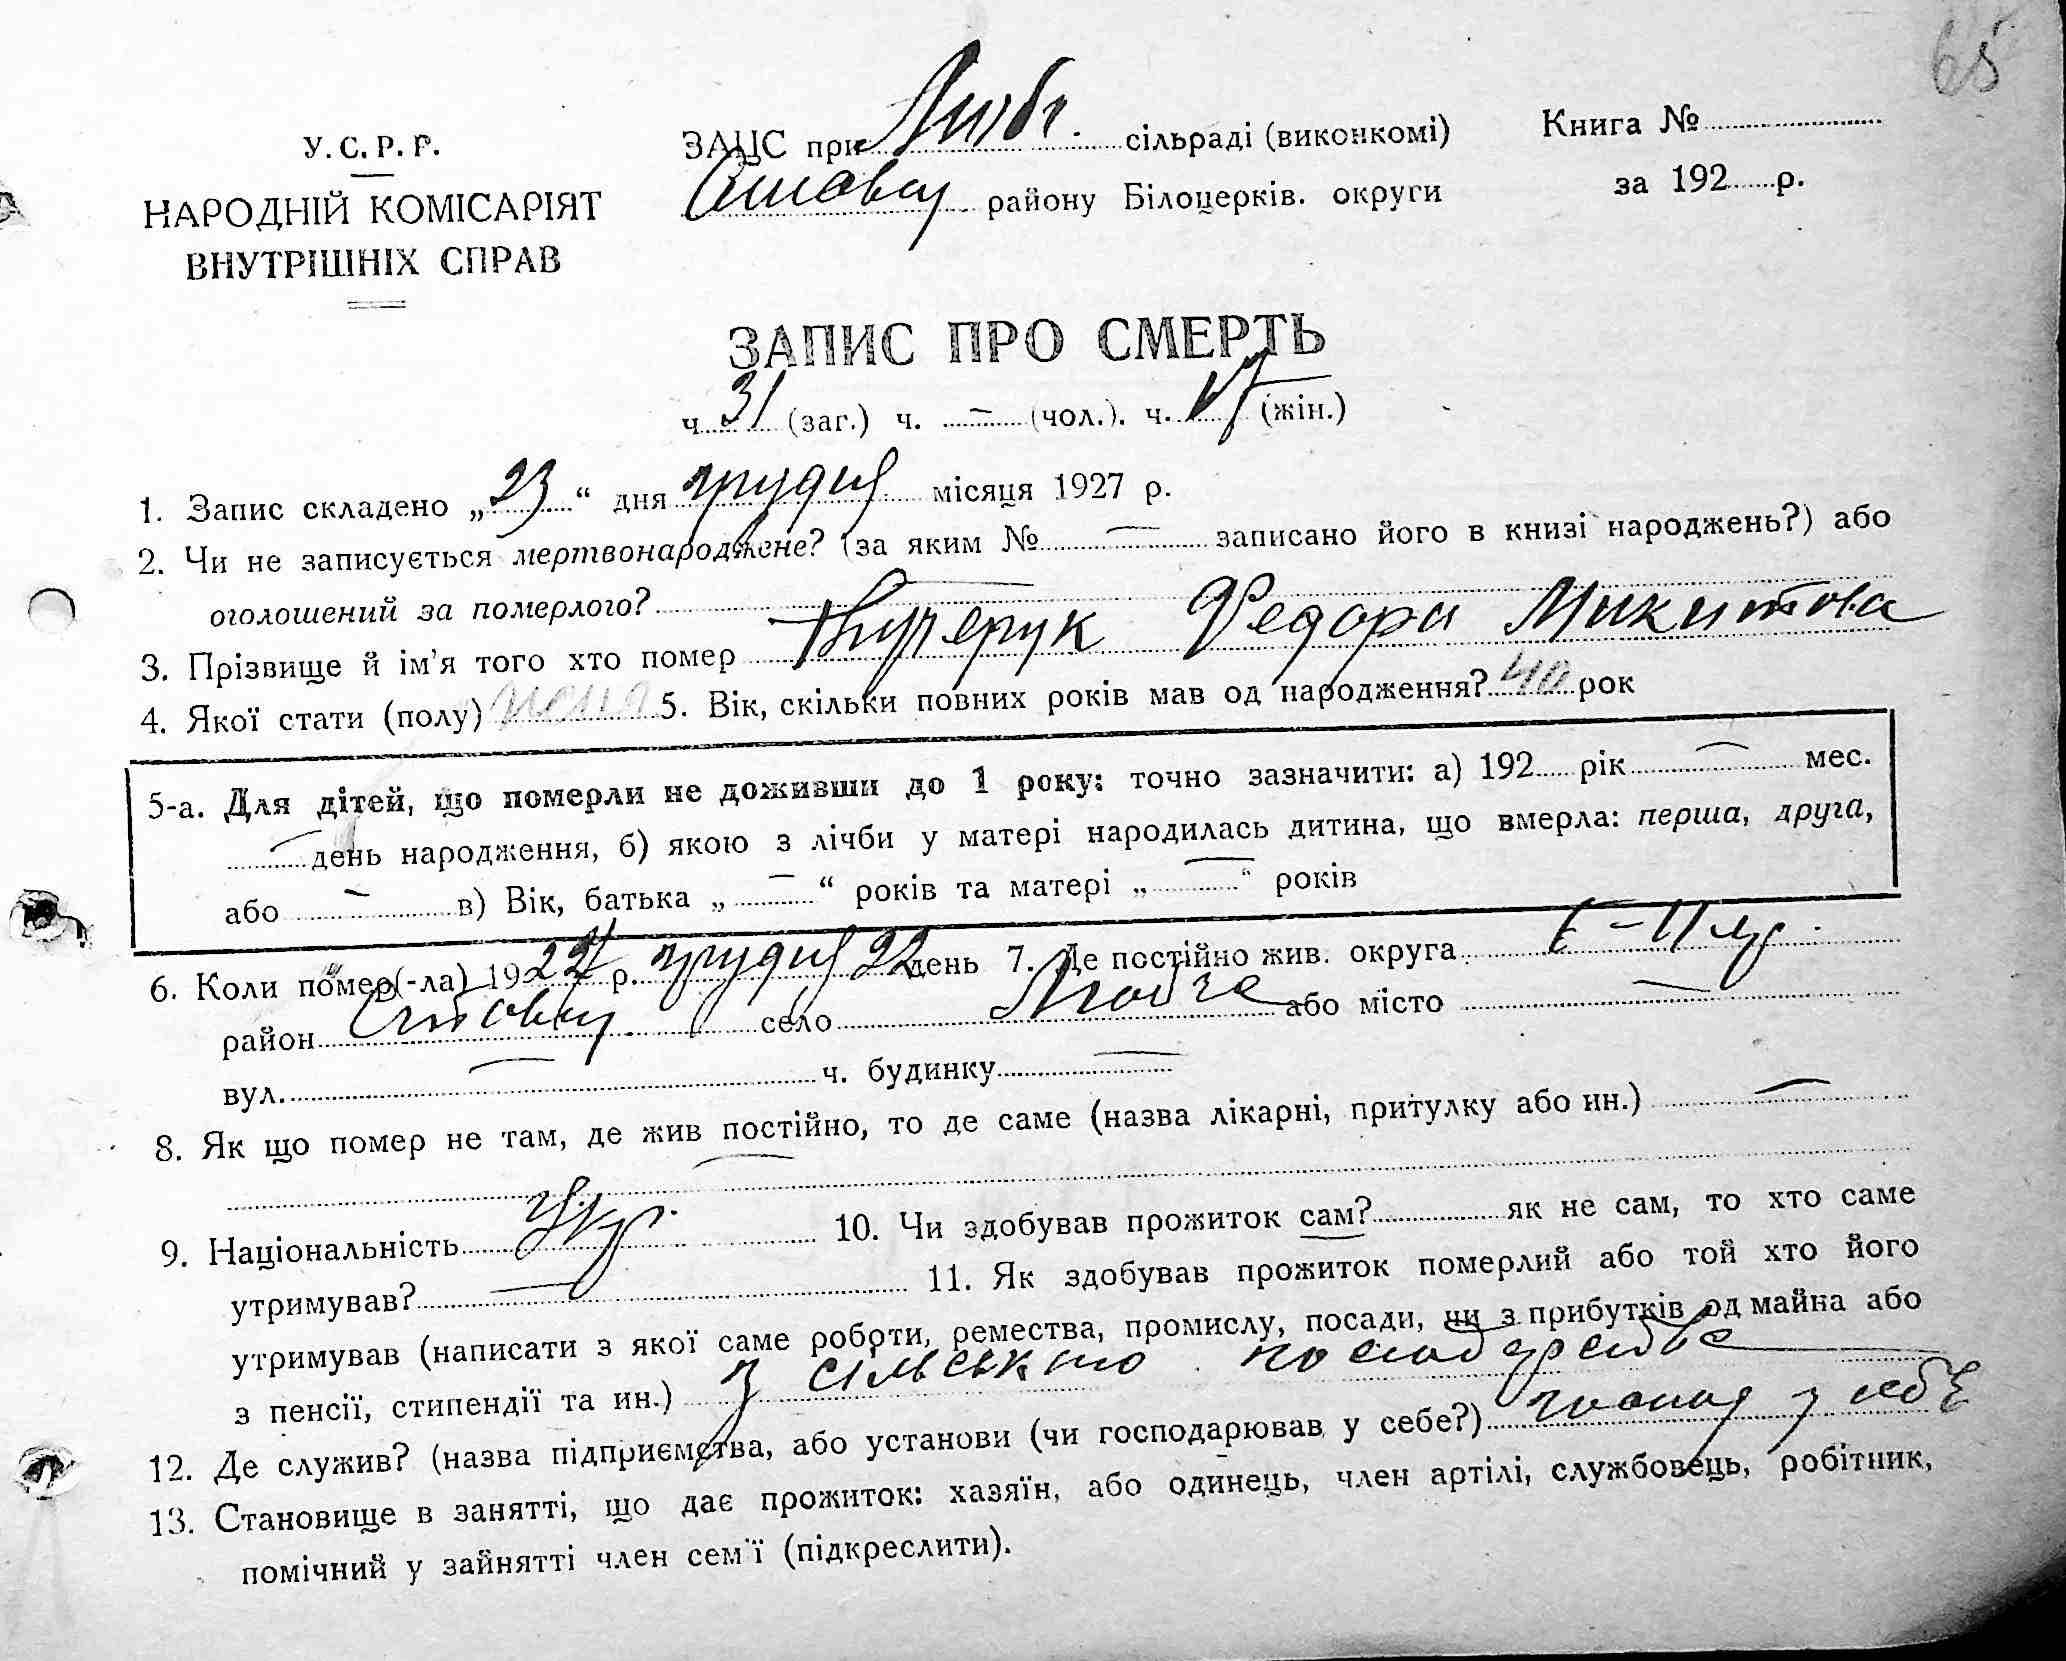 65
У.С.Р.Р.
НАРОДНІЙ КОМІСАРІЯТ
ВНУТРІШНІХ СПРАВ
ЗАЦС при Любч. сільраді (виконкомі)
району Білоцерків. округи
Книга №
за 192 р.
ЗАПИС ПРО СМЕРТЬ
ч 31 (заг.) ч. — (чол.). ч. 17 (жін.)
1. Запис складено „23“ дня грудня місяця 1927 р.
2. Чи не записується мертвонароджене? (за яким № — записано його в книзі народжень?) або
оголошений за померлого? —
3. Прізвище й ім'я того хто помер Федора Микитова
4. Якої стати (полу) жіноч 5. Вік, скільки повних років мав од народження? 40 рок
5-а. Для дітей, що померли не доживши до 1 року: точно зазначити: а) 192 рік — мес.
— день народження, б) якою з лічби у матері народилась дитина, що вмерла: перша, друга,
або — в) Вік, батька „—“ років та матері „—“ років
6. Коли помер(-ла) 1927 р. грудня 22 день 7. Де постійно жив. округа Б-Ц
район село або місто —
вул. — ч. будинку —
8. Як що помер не там, де жив постійно, то де саме (назва лікарні, притулку або ин.) —
—
9. Національність Укр. 10. Чи здобував прожиток сам? як не сам, то хто саме
утримував? — 11. Як здобував прожиток померлий або той хто його
утримував (написати з якої саме роботи, ремества, промислу, посади, чи з прибутків од майна або
з пенсії, стипендії та ин.) з сільського
12. Де служив? (назва підприємства, або установи (чи господарював у себе?) у себе
13. Становище в занятті, що дає прожиток: хазяїн, або одинець, член артілі, службовець, робітник,
помічний у зайнятті член сем'ї (підкреслити).